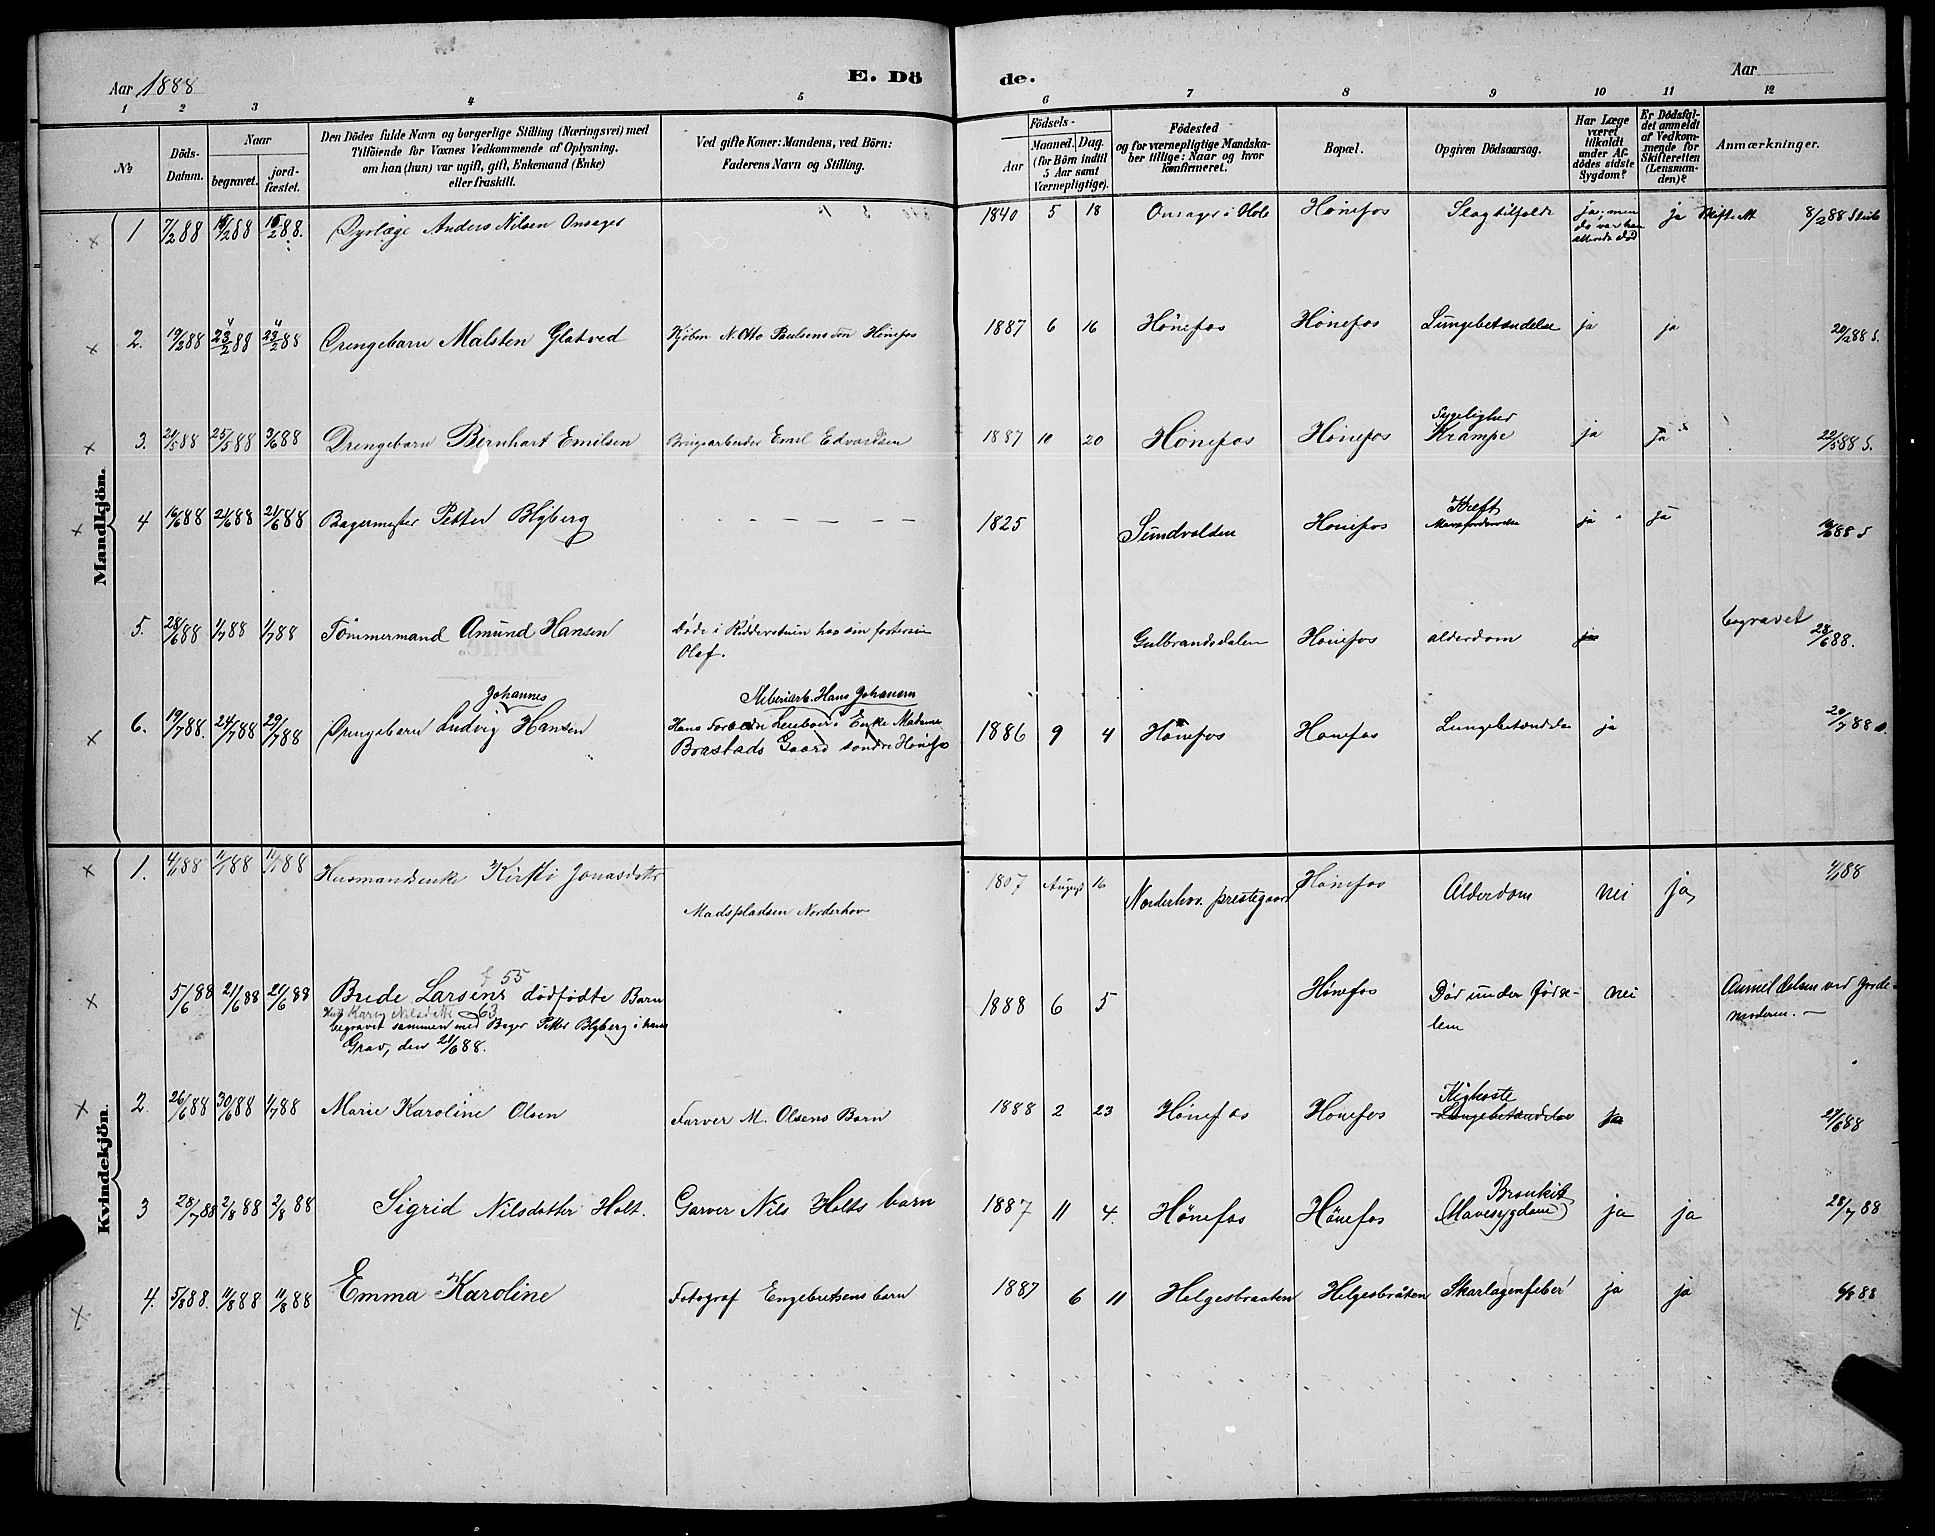 Aar 1888 E. Dö de. Aar
1 2 3 4 5 6 7 8 9 10 11 12
No
Döds-Datum.
Naar
begravet.
jord-fæstet.
Den Dödes fulde Navn og borgerlige Stilling (Næringsvei) med
Tilföiende for Voxnes Vedkommende af Oplysning,
om han (hun) var ugift, gift, Enkemand (Enke)
eller fraskilt.
Ved gifte Koner: Mandens, ved Börn:
Faderens Navn og Stilling.
Födsels-
Aar
Maaned. Dag.
(for Börn indtil
5 Aar samt
Værnepligtige).
Födested
og for værnepligtige Mandska-
ber tillige: Naar og hvor
konfirmeret.
Bopæl.
Opgiven Dödsaarsag.
Har Læge
været
tilkaldt
under Af-
dödes sidste
Sygdom?
Er Dödsfal-
det anmeldt
af Vedkom-
mende for
Skifteretten
(Lensman-
den)?
Anmærkninger.
Mandkjön.
1 7/2 88 15/2 88 15/2 88. Dyrlæge Anders Nilsen Onsager 1840 5 18 Onsager i Hole Hönefos Slagtilfælde ja; men da var han allerede död ja 8/2 88
2. 19/2 88 23/2 88 23/2 88 Drengebarn Malsten Glatved Kjöbm N. Otto Paulsens sön Hönefos 1887 6 16 Hönefos Hönefos Lungebetændelse ja ja 20/2 88 S.
3. 21/5 88 25/5 88 3/6 88 Drengebarn Bernhart Emilsen Brugsarbeider Emil Edvardsen 1887 10 20 Hönefos Hönefos Sygelighed Krampe ja ja 22/5 88 S.
4 16/6 88 21/6 88 21/6 88 Bagermester Petter Blyberg — — — — 1825 Sundvolden Hönefos Kreft ja ja 16/6 88 S
5. 28/6 88 1/7 88 1/7 88 Tömmermand Amund Hansen Döde i Ridderstuen hos sin fostersön
Olaf. Gulbrandsdalen Hönefos alderdom ja begravet 28/6 88.
6. 19/7 88. 24/7 88 29/7 88 Drengebarn Ludvig Johannes Hansen Hans Johansen
Hans Forældre Leieboer i Enke Madame
Brastads Gaard söndre Hönefos 1886 9 4 Hönefos Hönefos Lungebetændelse ja 20/7 88
Kvindekjön.
1. 4/1 88 11/1 88 11/1 88 Husmandsenke Kirsti Jonasdatter
Madspladsen Norderhov 1807 August 16 Norderhov prestegaard Hönefos Alderdom nei ja 4/1 88
5/6 88 21/6 88 21/6 88 Brede Larsens f 55 dödfödte Barn
Karen Nilsdatter 63
begravet sammen med Bager Petter Blyberg i hans
Grav, den 21/6 88. 1888 6 5 Hönefos Död under Födse-
len nei Anmeldelsen ved Jorde-
moderen. —
2. 26/6 88 30/6 88 1/7 88 Marie Karoline Olsen Farver M. Olsens Barn 1888 2 23 Hönefos Hönefos Kighoste Lungebetændelse ja 27/6 88
3 28/7 88 2/8 88 2/8 88 Sigrid Nilsdatter Holt. Garver Nils Holts barn 1887 11 4. Hönefos Hönefos Bronkit (Mavesygdom) ja ja 28/7 88
4. 5/8 88. 11/8 88 11/8 88 Emma Karoline Fotograf Engebretsens barn 1887 6 11 Helgesbraaten Helgesbråten Skarlagenfeber ja ja 6/8 88